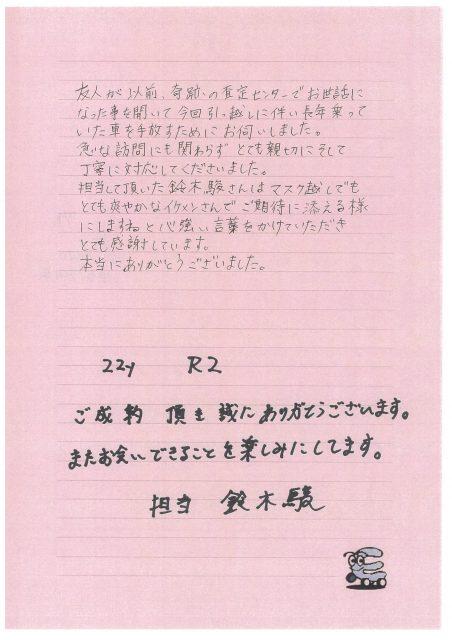 友人が以前、奇跡の査定センターでお世話に
なった事を聞いて今回引っ越しに伴い長年乗って
いた車を手放すためにお伺いしました。
急な訪問にも関わらずとても親切にそして
丁寧に対応してくださいました。
担当して頂いた鈴木駿さんはマスク越しでも
とても爽やかなイケメンさんでご期待に添える様
にしますねと心強い言葉をかけていただき
とても感謝しています。
本当にありがとうございました。
22y R2
ご成約 頂き 誠にありがとうございます。
またお会いできることを楽しみにしてます。
担当 鈴木駿